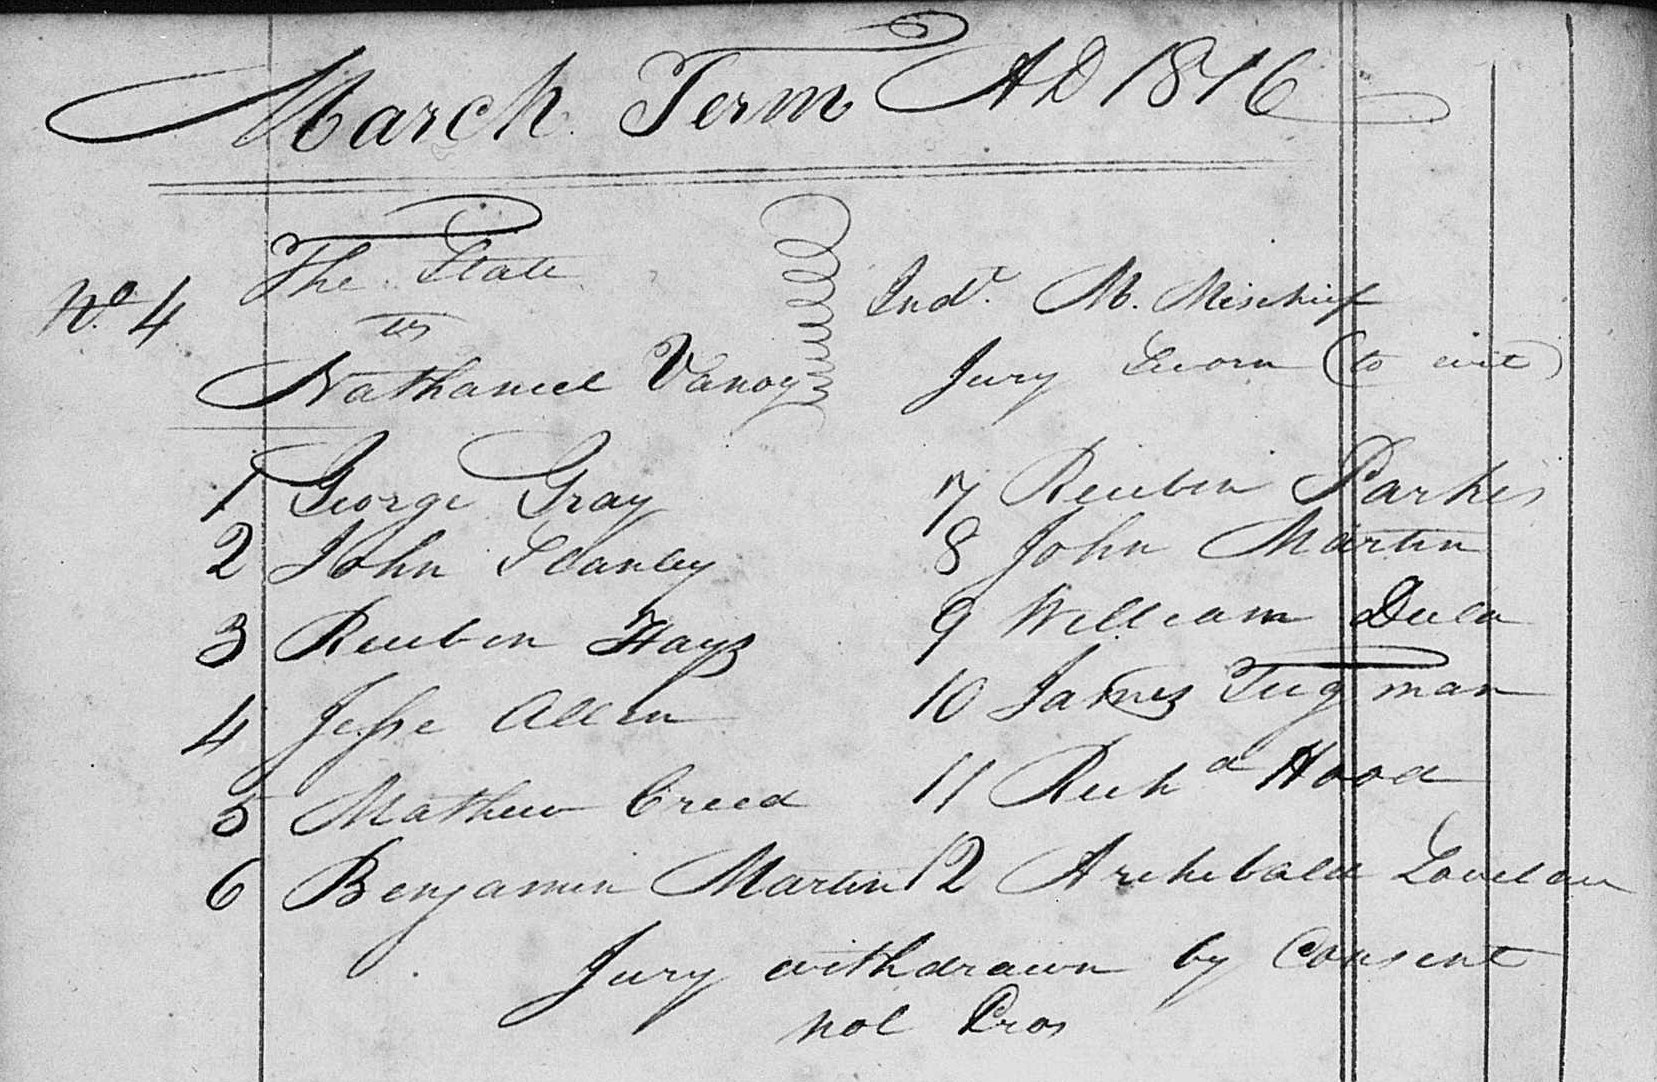 March Term AD 1816
The State
No. 4
vs
Nathaniel Vanoy
Indt. M. Mischief
Jury Sworn (to wit)
1 George Gray
2 John Stanley
3 Reubin Hays
4 Jesse Allen
5 Mathew Creed
6 Benjamin Martin
7 Reubin Parkes
8 John Martin
9 William Dula
10 James Tugman
11 Richd Hood
12 Archibald Lovelace
Jury withdrawn by Consent
nol Pros